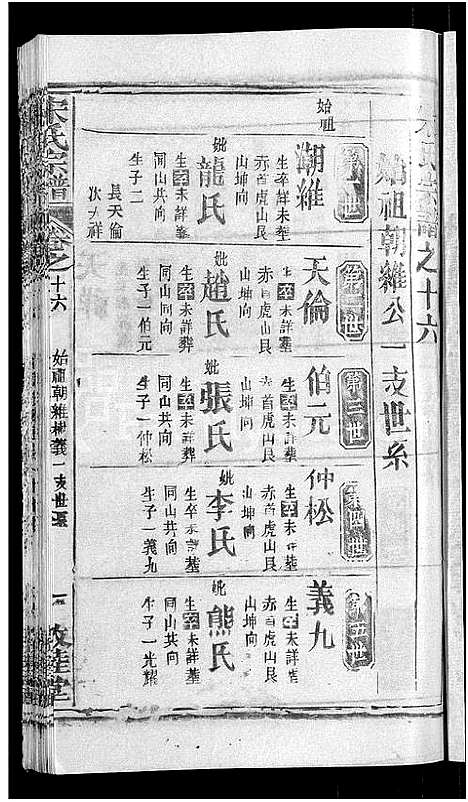 宋氏宗譜之十六
始祖朝維公一支世系
第一世
始祖
潮維
生卒詳未塟
赤首虎山艮
山坤向
妣龍氏
生卒未詳塟
同山共向
生子二
長天倫
次天祥
第二世
天倫
生卒未詳塟
赤首虎山艮
山坤向
妣趙氏
生卒未詳葬
同山共向
生子一伯元
第三世
伯元
生卒未詳葬
赤首虎山艮
山坤向
妣張氏
生卒未詳葬
同山共向
生子一仲松
第四世
仲松
生卒未詳塟
赤首虎山艮
山坤向
妣李氏
生卒未詳塟
同山共向
生子一義九
第五世
義九
生卒未詳塟
赤首虎山艮
山坤向
妣熊氏
生卒未詳塟
同山共向
生子一光耀
宋氏宗譜
卷之十六
始祖朝維
一支世系
一
堂